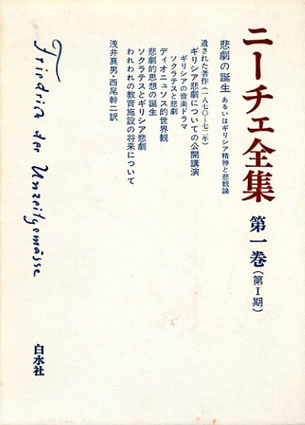 ニーチェ全集
第一巻(第Ⅰ期)
悲劇の誕生 あるいはギリシア精神と悲観論
遺された著作(一八七〇―七二年)
ギリシア悲劇についての公開講演
ギリシアの音楽ドラマ
ソクラテスと悲劇
ディオニュソス的世界観
悲劇的思想の誕生
ソクラテスとギリシア悲劇
われわれの教育施設の将来について
浅井真男・西尾幹二訳
Friedrich der Unzeitgemässe
白水社